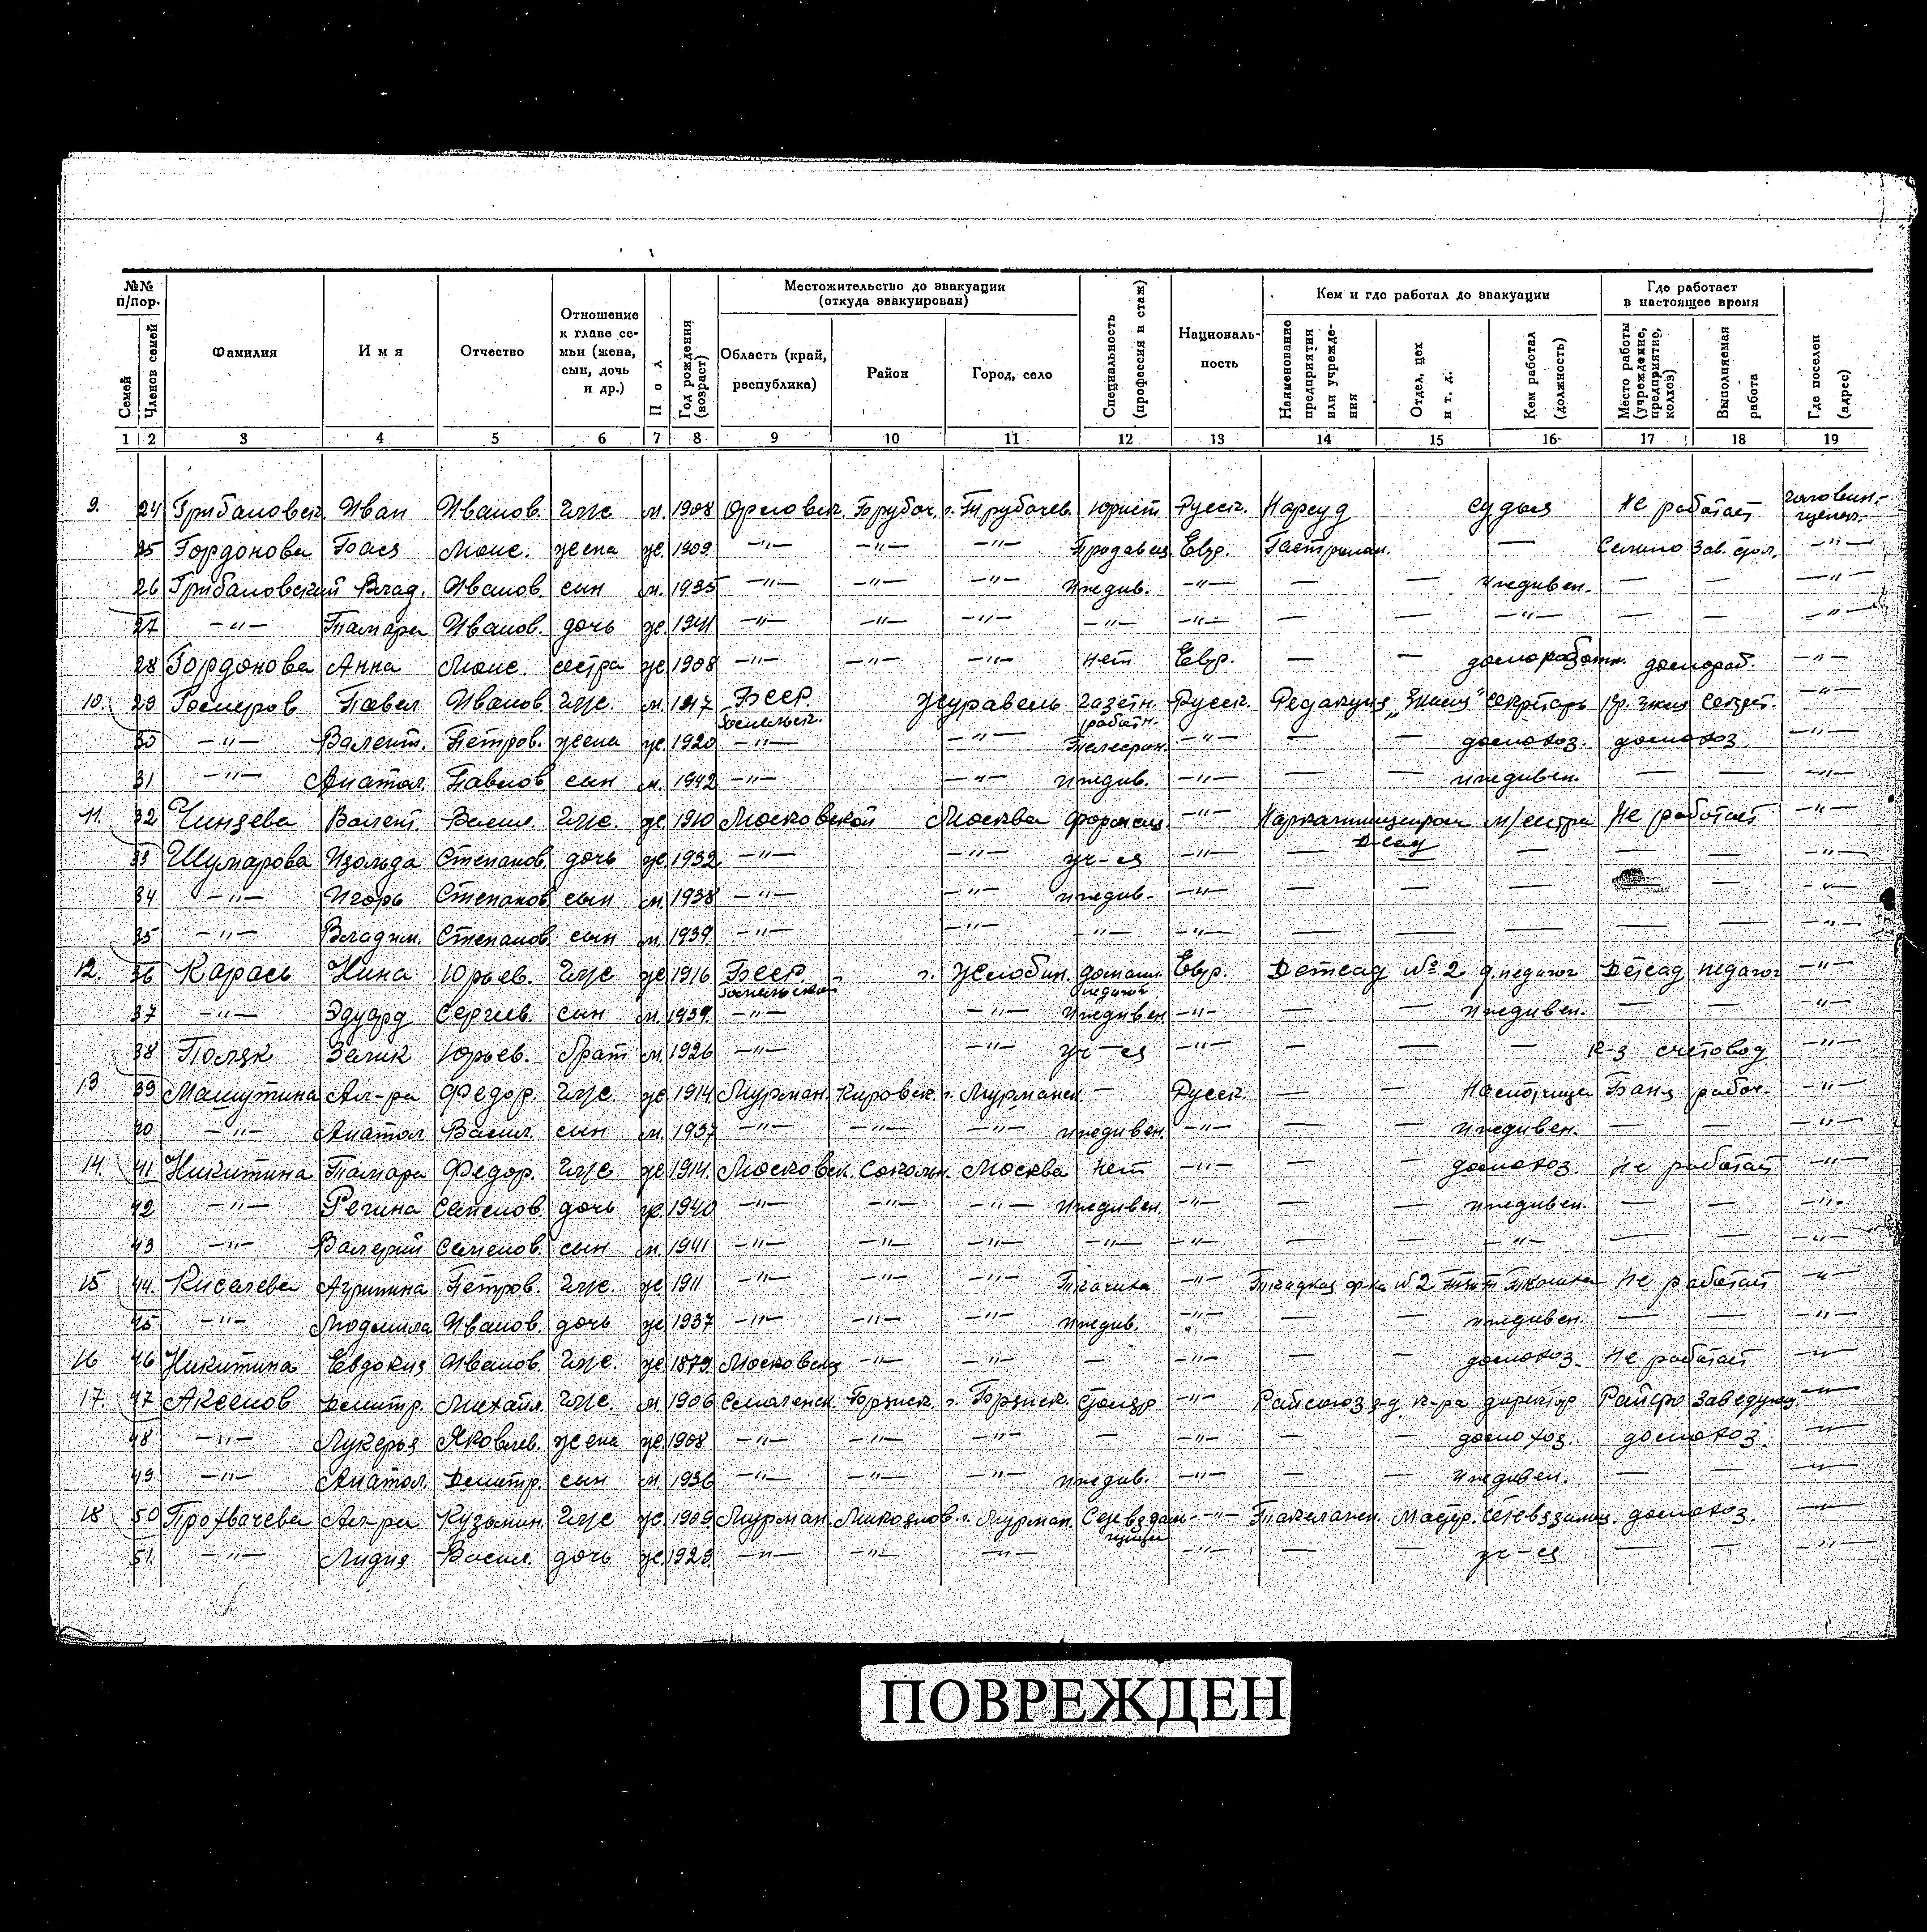 №№ п/пор.
Семей
Членов семей
Фамилия
Имя
Отчество
Отношение к главе семьи (жена, сын, дочь и др.)
Пол
Год рождения (возраст)
Местожительство до эвакуации (откуда эвакуирован)
Область (край, республика)
Район
Город, село
Специальность (профессия и стаж)
Националь-ность
Кем и где работал до эвакуации
Наименование предприятия или учрежде-ния
Отдел, цех и т. д.
Кем работал (должность)
Где работает в настоящее время
Место работы (учреждение, предприятие, колхоз)
Выполняемая работа
Где поселен (адрес)
1 2 3 4 5 6 7 8 9 10 11 12 13 14 15 16 17 18 19
9. 24 Грибановск. Иван Иванов. м. 1908 Орловск. Трубач. г. Трубачев. юрист Русск. Нарсуд судья Не работает
25 Гордонова Бася Моис. жена ж. 1909 —"— —"— —"— Продавец Евр. Гастроном. — Сельпо Зав. —"—
26 Грибановский Влад. Иванов сын м. 1935 —"— —"— —"— иждив. —"— — — иждивен. — — —"—
27 —"— Тамара Иванов. дочь ж. 1941 —"— —"— —"— —"— —"— — — —"— — — —"—
28 Гордонова Анна Моис. сестра ж 1908 —"— —"— —"— нет Евр. — — доморабот. домораб. —"—
10. 29 Павел Иванов. м. 1917 Бсср. Гомельск. Журавель газетн. работн. Русск. Редакция секретарь —"—
30 —"— Валент. Петров. жена ж. 1920 —"— —"— Телефон. —"— — — домохоз. домохоз. —"—
31 —"— Анатол. Павлов сын м. 1942 —"— —"— иждив. —"— — — иждивен. — — —"—
11. 32 Чиняева Валент. Васил. ж. 1910 Московской Москва —"— м/сестра Не работает —"—
33 Шумарова Изольда Степанов. дочь ж. 1932 —"— —"— уч-ся —"— — — — — — —"—
34 —"— Игорь Степанов. сын м. 1938 —"— —"— иждив. —"— — — — — —"—
35 —"— Владим. Степанов. сын м. 1939 —"— —"— —"— —"— — — — — — —"—
12. 36 Карась Нина Юрьев. ж 1916 Бсср. Гомельской г. Жлобин. домашн. педагог Евр. Детсад №2 педагог Детсад педагог —"—
37 —"— Эдуард Сергеев. сын м. 1939. —"— —"— иждивен —"— — — иждивен. — — —"—
38 Поляк Зелик Юрьев. брат м. 1926 —"— —"— уч-ся —"— — — — к-з счетовод —"—
13 39 Машутина Ал-ра Федор. ж. 1914 Мурман. Кировск. г. Мурманск. — Русск. — — Баня рабоч. —"—
40 —"— Анатол. Васил. сын м. 1937 —"— —"— —"— иждивен. —"— — — иждивен. — — —"—
14. 41 Никитина Тамара Федор. ж 1914. Московск. Сокольн. Москва нет —"— — — домохоз. Не работает —"—
42 —"— Регина Семенов. дочь ж. 1940 —"— —"— —"— иждивен. —"— — — иждивен. — — —"—
43 —"— Валерий Семенов. сын м. 1941 —"— —"— —"— —"— —"— — — —"— — — —"—
15 44. Киселева Агрипина Петров. ж 1911 —"— —"— —"— Ткачиха —"— Ткацкая ф-ка №2 Ткачиха Не работает —"—
45 —"— Людмила Иванов. дочь ж. 1937 —"— —"— —"— иждив. —"— — — иждивен. — — —"—
16 46 Никитина Евдокия Иванов. ж. 1879. Московская —"— —"— — —"— — — домохоз. Не работает —"—
17. 47 Аксенов Дмитр. Михайл. м 1906 Смоленск. столяр —"— Райсоюз к-ра директор —"—
48 —"— Лукерья Яковлев. жена ж. 1908 —"— —"— —"— — —"— — — домохоз. домохоз. —"—
49 —"— Анатол. Дмитр. сын м 1936 —"— —"— —"— иждив. —"— — — иждивен. — — —"—
18 50 Прохвачева Ал-ра Кузьмин. ж. 1909. Мурман. Микоянов. г. Мурман. —"— Такелажн. Мастер. домохоз. —"—
51. —"— Лидия Васил. дочь ж. 1929. —"— —"— —"— —"— — — уч-ся — — —"—
ПОВРЕЖДЕН